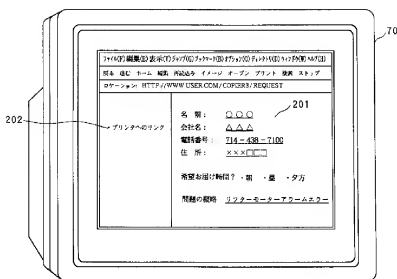 70
ファイル(F) 編集(E) 表示(T) ジャンプ(G) ブックマーク(B) オプション(O) ディレクトリ(D) ウィンドウ(W) ヘルプ(H)
戻る 進む ホーム 編集 再読込み イメージ オープン プリント 検索 ストップ
ロケーション: HTTP://WWW.USER.COM/COPIER3/REQUEST
201
202
・プリンタへのリンク
名 前: ○○○
会社名: △△△
電話番号: 714-438-7100
住 所: ×××□□□
希望お届け時間? ・朝 ・昼 ・夕方
問題の概略 リフターモーターアラームエラー